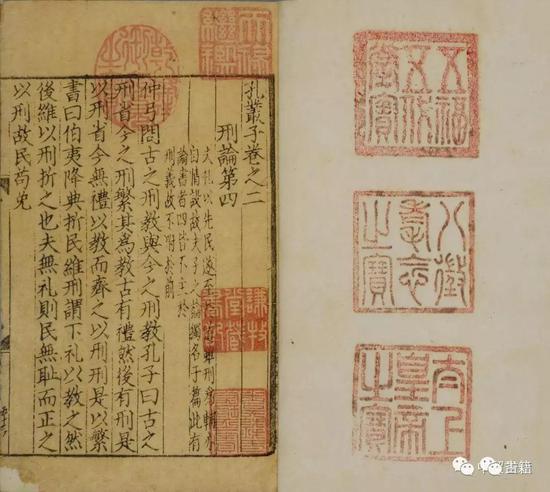 五福
五代
堂寶
八徵
耄念
之寶
太上
皇帝
之寶
天祿
繼鑑
孔叢子卷之二
刑論第四
論書者四皆不主於
刑義故不附於前
仲弓問古之刑教與今之刑教孔子曰古之
刑省今之刑繁其為教古有禮然後有刑是
以刑省今無禮以教而齊之以刑刑是以繁
書曰伯夷降典折民維刑謂下礼以教之然
後維以刑折之也夫無礼則民無恥而正之
以刑故民苟免
謙牧
堂藏
書記
書籍